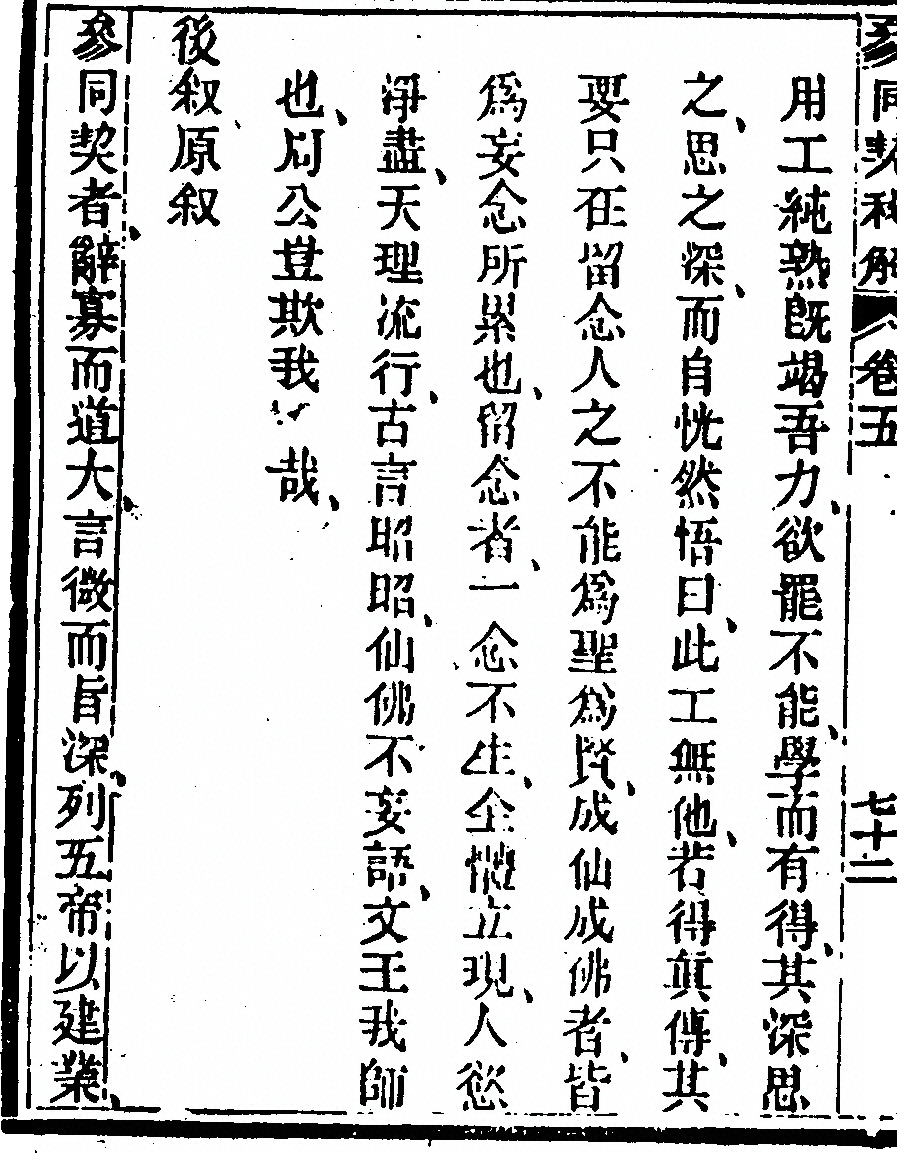 參同契秘解 卷五 七十二
用工純熟旣竭吾力、欲罷不能、學而有得、其深思
之、思之深、而自恍然悟曰、此工無他、若得眞傳、其
要只在留念人之不能爲聖爲賢、成仙成佛者、皆
爲妄念所累也、留念者、一念不生、全體立現、人慾
淨盡、天理流行、古言昭昭、仙佛不妄語、文王我師
也、周公豈欺我 哉、
後叙原叙
參同契者、辭寡而道大、言微而旨深、列五帝以建業、